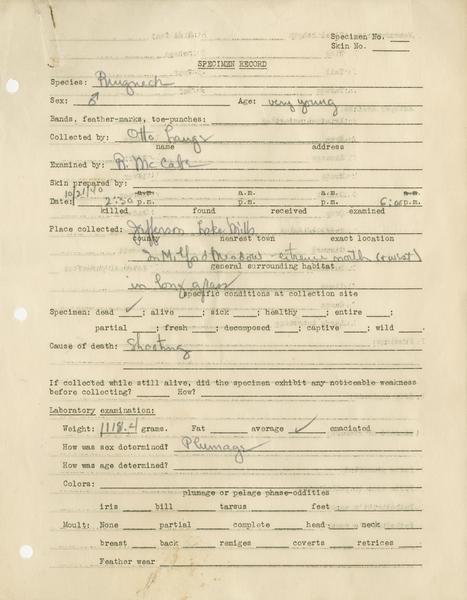 Specimen No.
Skin No.
SPECIMEN RECORD
Species: Ringneck
Sex: ♂ Age: very young
Bands, feather-marks, toe-punches:
Collected by: Otto Lange
name address
Examined by: R. McCabe
Skin prepared by:
10/21/40 a.m. a.m. a.m. a.m.
Date: 2:30 p.m. p.m. p.m. 6:00 p.m.
killed found received examined
Place collected: Jefferson Lake Mills
county nearest town exact location
In Milford Meadow - extreme north
general surrounding habitat
in long grass
specific conditions at collection site
Specimen: dead ✓; alive ; sick ; healthy ; entire ;
partial ; fresh ; decomposed ; captive ; wild .
Cause of death: Shooting
If collected while still alive, did the specimen exhibit any noticeable weakness
before collecting? How?
Laboratory examination:
Weight: 1118.4 grams. Fat average ✓ emaciated
How was sex determined? Plumage
How was age determined?
Colors:
plumage or pelage phase-oddities
iris bill tarsus feet
Moult: None partial complete head neck
breast back remiges coverts retrices
Feather wear